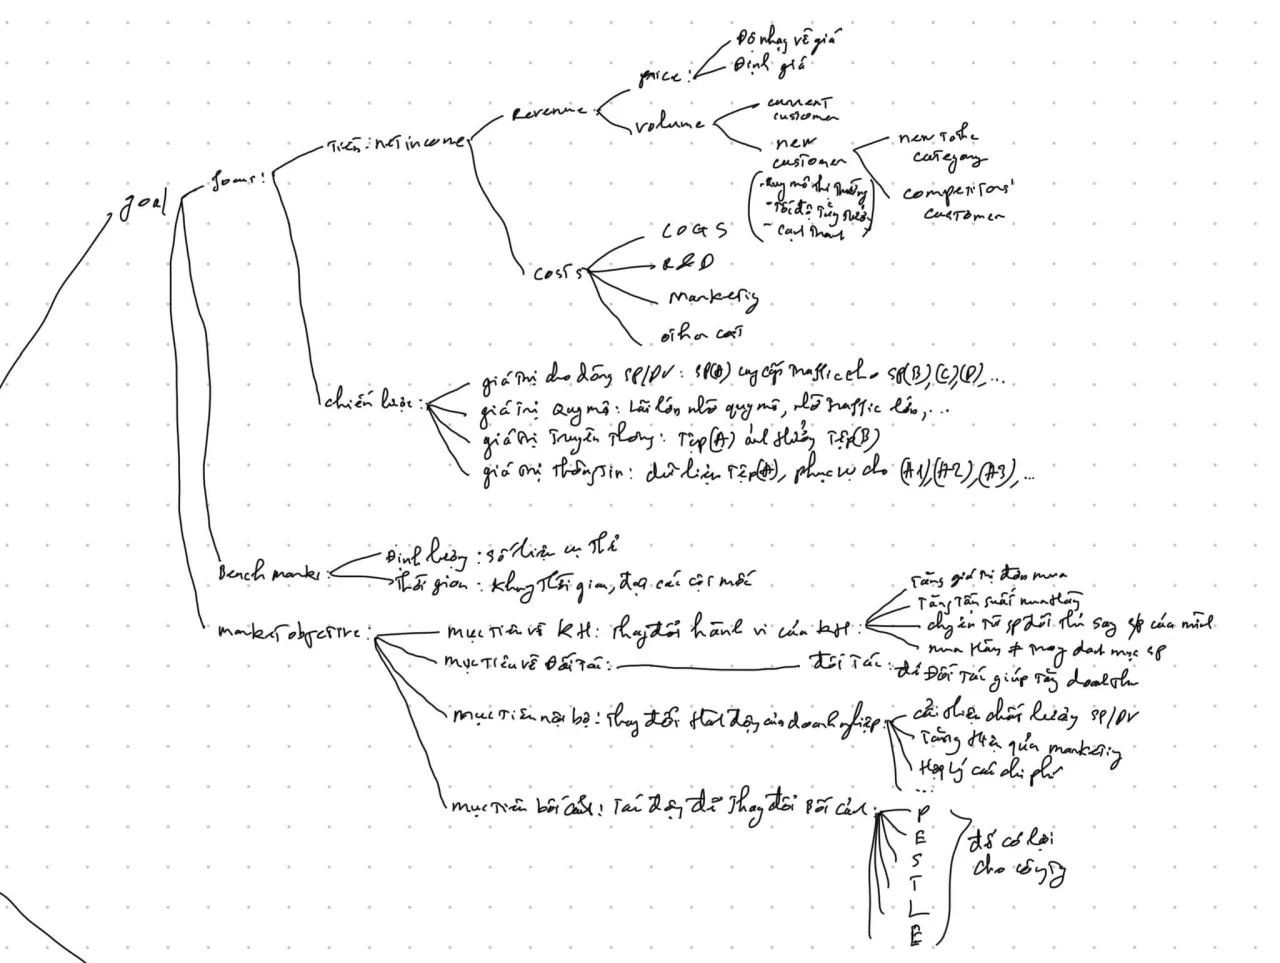 goal
focus:
Tiền: net income
Revenue
price:
Độ nhạy về giá
Định giá
volume
current
customer
new
customer
- Quy mô thị trường
- Tốc độ tăng trưởng
- Cạnh tranh
new to the
category
competitors'
customer
costs
COGS
R&D
Marketing
other cost
chiến lược:
giá trị cho dòng SP/DV: SP(A) cung cấp traffic cho SP(B),(C),(D),...
giá trị Quy mô: Lãi lớn nhờ quy mô, nhờ traffic lớn,...
giá trị Truyền thông: Tệp(A) ảnh hưởng Tệp(B)
giá trị thông tin: dữ liệu Tệp(A), phục vụ cho (A1),(A2),(A3),...
Bench marks:
Định lượng: số liệu cụ thể
Thời gian: khung thời gian, đạt các cột mốc
market objective:
mục tiêu về KH: thay đổi hành vi của KH:
Tăng giá trị đơn mua
Tăng tần suất mua hàng
chuyển từ sp đối thủ sang sp của mình
mua hàng ≠ trong danh mục sp
mục tiêu về Đối tác:
đối tác: để Đối tác giúp tăng doanh thu
mục tiêu nội bộ: thay đổi hoạt động của doanh nghiệp:
cải thiện chất lượng SP/DV
Tăng hiệu quả marketing
Hợp lý các chi phí
...
mục tiêu bối cảnh: Tác động để thay đổi Bối cảnh:
P
E
S
T
L
E
để có lợi
cho công ty